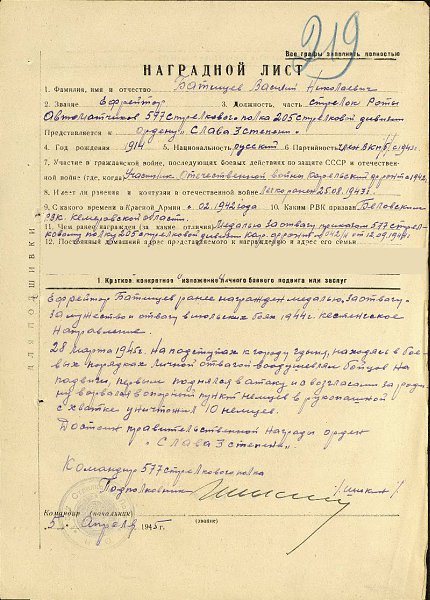 219
Все графы заполнять полностью
НАГРАДНОЙ ЛИСТ
1. Фамилия, имя и отчество Батищев Василий Николаевич
2. Звание Ефрейтор 3. Должность, часть стрелок Роты
Автоматчиков 577 стрелкового полка 205 стрелковой дивизии
Представляется к Ордену Слава 3 степени
4. Год рождения 1914 5. Национальность русский 6. Партийность ВКП/б/ с 1943 г.
7. Участие в гражданской войне, последующих боевых действиях по защите СССР и отечествен-
ной войне (где, когда) Участник Отечественной войны Карельский фронт с 1942 г.
8. Имеет ли ранения и контузии в отечественной войне Легко ранен 25.08.1943 г.
9. С какого времени в Красной Армии с 02.1942 года 10. Каким РВК призван Беловским
РВК. Кемеровской области.
11. Чем ранее награжден (за какие отличия) Медалью За отвагу приказом 577 стрел-
кового полка 205 стрелковой дивизии Кар. фронта № 042/н от 12.09.1944 г.
12. Постоянный домашний адрес представляемого к награждению и адрес его семьи
ДЛЯ ПОДШИВКИ
1. Краткое конкретное изложение личного боевого подвига или заслуг
Ефрейтор Батищев ранее награжден медалью За отвагу -
За мужество и отвагу в июльских боях 1944 г. кестеньгское
Направление.
28 марта 1945 г. На подступах к городу Гдыня, находясь в бое-
вых порядках личной отвагой воодушевлял бойцов на
подвиги, первым поднялся в атаку и с возгласами за роди-
ну ворвался в опорный пункт немцев в рукопашной
схватке уничтожил 10 немцев.
Достоин правительственной награды орден
„Слава 3 степени“
Командир 577 стрелкового полка
Подполковник /Шикин/
Командир (начальник)
(звание)
5. Апреля 1945 г.